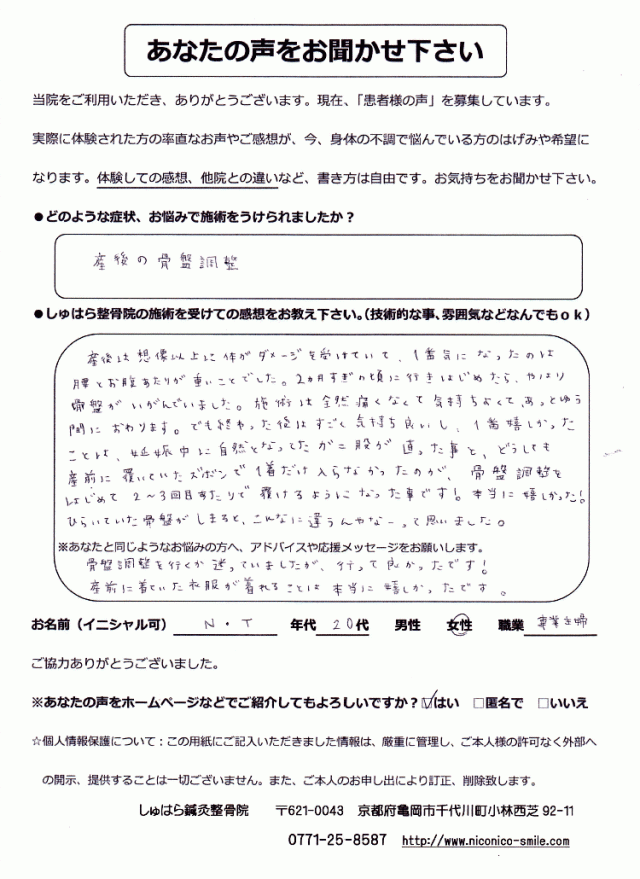 あなたの声をお聞かせ下さい
当院をご利用いただき、ありがとうございます。現在、「患者様の声」を募集しています。
実際に体験された方の率直なお声やご感想が、今、身体の不調で悩んでいる方のはげみや希望に
なります。体験しての感想、他院との違いなど、書き方は自由です。お気持ちをお聞かせ下さい。
●どのような症状、お悩みで施術をうけられましたか？
産後の骨盤調整
●しゅはら整骨院の施術を受けての感想をお教え下さい。（技術的な事、雰囲気などなんでもｏｋ）
産後は想像以上に体がダメージを受けていて、1番気になったのは
腰とお腹あたりが重いことでした。2ヵ月すぎの頃に行きはじめたら、やはり
骨盤がいがんでいました。施術は全然痛くなくて気持ちよくて、あっとゆう
間におわります。でも終わった後はすごく気持ち良いし、1番嬉しかった
ことは、妊娠中に自然となってたがに股が直った事と、どうしても
産前に履いていたズボンで1着だけ入らなかったのが、骨盤調整を
はじめて2〜3回目あたりで履けるようになった事です！本当に嬉しかった！
ひらいていた骨盤がしまると、こんなに違うんやなーって思いました。
※あなたと同じようなお悩みの方へ、アドバイスや応援メッセージをお願いします。
骨盤調整を行くか迷っていましたが、行って良かったです！
産前に着ていた衣服が着れることは本当に嬉しかったです。
お名前（イニシャル可） N・T 年代 20代 男性 女性 職業 専業主婦
ご協力ありがとうございました。
※あなたの声をホームページなどでご紹介してもよろしいですか？☑はい □匿名で □いいえ
☆個人情報保護について：この用紙にご記入いただきました情報は、厳重に管理し、ご本人様の許可なく外部へ
の開示、提供することは一切ございません。また、ご本人のお申し出により訂正、削除致します。
しゅはら鍼灸整骨院 〒621-0043 京都府亀岡市千代川町小林西芝92-11
0771-25-8587 http://www.niconico-smile.com